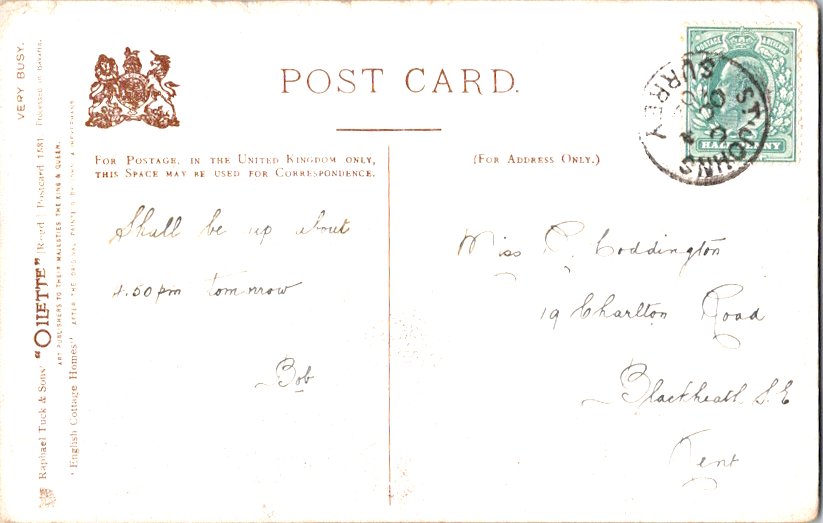 VERY BUSY.
Raphael Tuck & Sons' "OILETTE" [Regd.] Postcard 1581
ART PUBLISHERS TO THEIR MAJESTIES THE KING & QUEEN.
"English Cottage Homes"
POST CARD.
FOR POSTAGE, IN THE UNITED KINGDOM ONLY,
THIS SPACE MAY BE USED FOR CORRESPONDENCE.
(FOR ADDRESS ONLY.)
Shall be up about
4.50 pm tomorrow
Bob
Miss Coddington
19 Charlton Road
Blackheath S.E
Kent
POSTAGE & REVENUE
HALFPENNY
ST. JOHNS
SURREY